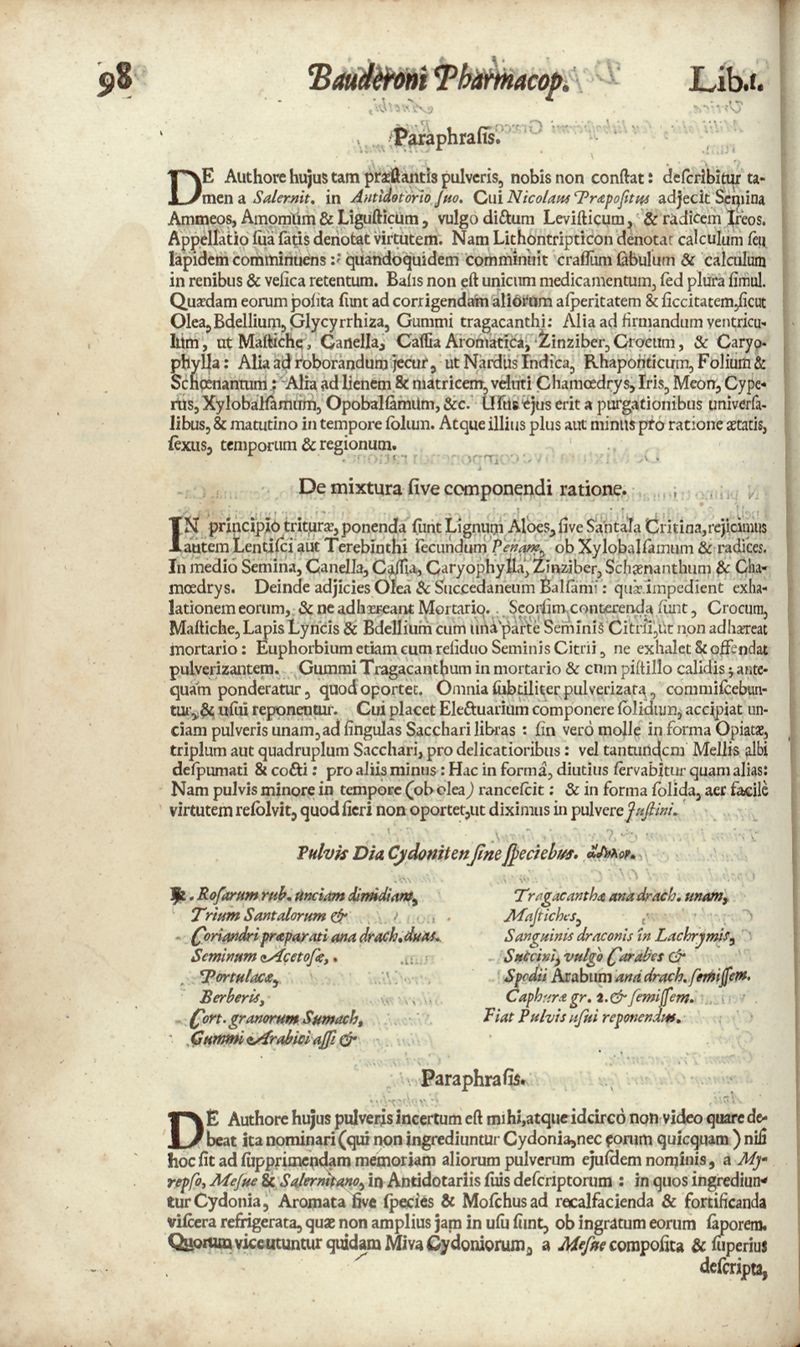 98 Bauderoni Pharmacop. Lib.1.
Paraphrasis.
DE Authore hujus tam præstantis pulveris, nobis non constat: describitur ta-
men a Salernit. in Antidotorio suo. Cui Nicolaus Præpositus adjecit Semina
Ammeos, Amomum & Ligusticum, vulgo dictum Levisticum, & radicem Ireos.
Appellatio sua satis denotat virtutem. Nam Lithontripticon denotat calculum seu
lapidem comminuens: quandoquidem comminuit crassum sabulum & calculum
in renibus & vesica retentum. Basis non est unicum medicamentum, sed plura simul.
Quædam eorum posita sunt ad corrigendam aliorum asperitatem & siccitatem, sicut
Olea, Bdellium, Glycyrrhiza, Gummi tragacanthi: Alia ad firmandum ventricu-
lum, ut Mastiche, Canella, Cassia Aromatica, Zinziber, Crocum, & Caryo-
phylla: Alia ad roborandum jecur, ut Nardus Indica, Rhaponticum, Folium &
Schœnantum: Alia ad lienem & matricem, veluti Chamœdrys, Iris, Meon, Cype-
rus, Xylobalsamum, Opobalsamum, &c. Usus ejus erit a purgationibus universa-
libus, & matutino in tempore solum. Atque illius plus aut minus pro ratione ætatis,
sexus, temporum & regionum.
De mixtura sive componendi ratione.
IN principio trituræ, ponenda sunt Lignum Aloes, sive Santala Critina, rejicimus
autem Lentisci aut Terebinthi secundum Penam, ob Xylobalsamum & radices.
In medio Semina, Canella, Cassia, Caryophylla, Zinziber, Schænanthum & Cha-
mœdrys. Deinde adjicies Olea & Succedaneum Balsami: quæ impedient exha-
lationem eorum, & ne adhæreant Mortario. Seorsim conterenda sunt, Crocum,
Mastiche, Lapis Lyncis & Bdellium cum una parte Seminis Citrii, ut non adhæreat
mortario: Euphorbium etiam cum residuo Seminis Citrii, ne exhalet & offendat
pulverizantem. Gummi Tragacanthum in mortario & cum pistillo calidis; ante-
quam ponderatur, quod oportet. Omnia subtiliter pulverizata, commiscebun-
tur, & usui reponentur. Cui placet Electuarium componere solidum, accipiat un-
ciam pulveris unam, ad singulas Sacchari libras: sin vero molle in forma Opiatæ,
triplum aut quadruplum Sacchari, pro delicatioribus: vel tantundem Mellis albi
despumati & cocti: pro aliis minus: Hac in formâ, diutius servabitur quam alias:
Nam pulvis minore in tempore (ob olea) rancescit: & in forma solida, aer facilè
virtutem resolvit, quod fieri non oportet, ut diximus in pulvere Justini.
Pulvis Dia Cydoniten sine speciebus.
℞. Rosarum rub. unciam dimidiam,
Trium Santalorum &
Coriandri præparati ana drach. duas.
Seminum Acetosæ,
Portulacæ,
Berberis,
Cort. granorum Sumach,
Gummi Arabici assi &
Tragacanthæ ana drach. unam,
Mastiches,
Sanguinis draconis in Lachrymis,
Succini, vulgo Carabes &
Spodii Arabum ana drach. semissem.
Caphuræ gr. 2. & semissem.
Fiat Pulvis usui reponendus.
Paraphrasis.
DE Authore hujus pulveris incertum est mihi, atque idcircò non video quare de-
beat ita nominari (qui non ingrediuntur Cydonia, nec eorum quicquam) nisi
hoc sit ad supprimendam memoriam aliorum pulverum ejusdem nominis, a My-
repso, Mesue & Salernitano, in Antidotariis suis descriptorum: in quos ingrediun-
tur Cydonia, Aromata sive species & Moschus ad recalfacienda & fortificanda
viscera refrigerata, quæ non amplius jam in usu sunt, ob ingratum eorum saporem.
Quorum vice utuntur quidam Miva Cydoniorum, a Mesue composita & superius
descripta,